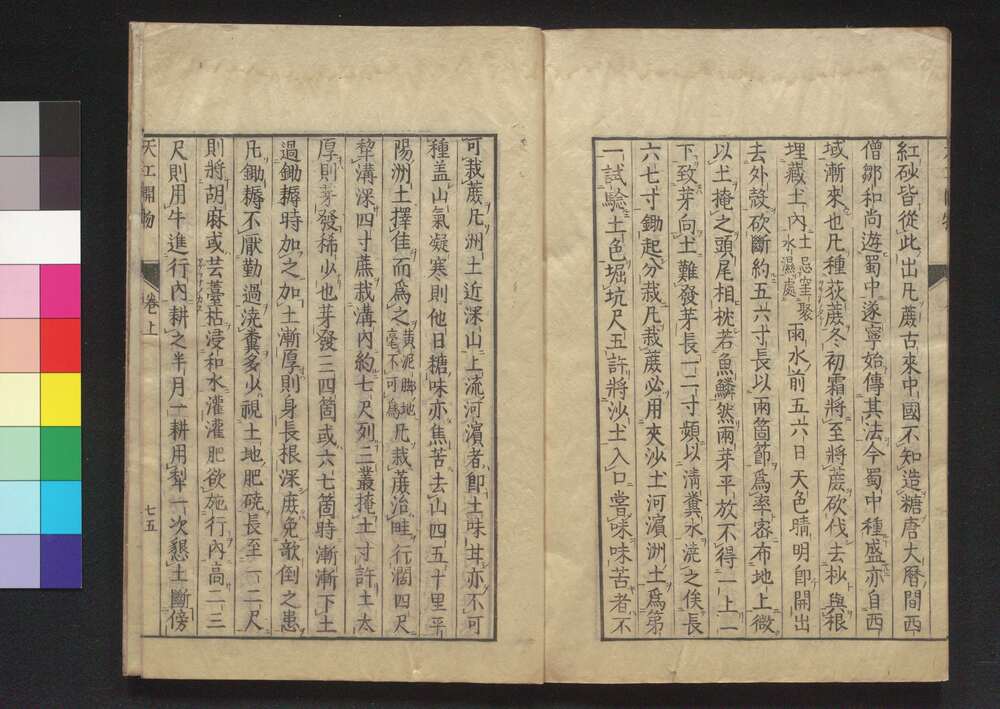 紅砂皆從此出凡蔗古來中國不知造糖唐大曆間西
僧鄒和尚遊蜀中遂寧始傳其法今蜀中種盛亦自西
域漸來也凡種荻蔗冬初霜將至將蔗砍伐去杪與根
埋藏土內土忌窪聚水濕處雨水前五六日天色晴明卽開出
去外殼砍斷約五六寸長以兩箇節爲率密布地上微
以土掩之頭尾相枕若魚鱗然兩芽平放不得一上一
下致芽向土難發芽長一二寸頻以淸糞水澆之俟長
六七寸鋤起分栽凡栽蔗必用夾沙土河濱洲土爲第
一試驗土色堀坑尺五許將沙土入口嘗味味苦者不
可栽蔗凡洲土近深山上流河濱者卽土味甘亦不可
種盖山氣凝寒則他日糖味亦焦苦去山四五十里平
陽洲土擇佳而爲之黃泥脚地毫不可爲凡栽蔗治畦行濶四尺
犂溝深四寸蔗栽溝內約七尺列三叢掩土寸許土太
厚則芽發稀少也芽發三四箇或六七箇時漸漸下土
過鋤耨時加之加土漸厚則身長根深庻免欹倒之患
凡鋤耨不厭勤過澆糞多少視土地肥磽長至一二尺
則將胡麻或芸薹枯浸和水灌灌肥欲施行內高二三
尺則用牛進行內耕之半月一耕用犂一次懇土斷傍
天工開物
卷上
七五